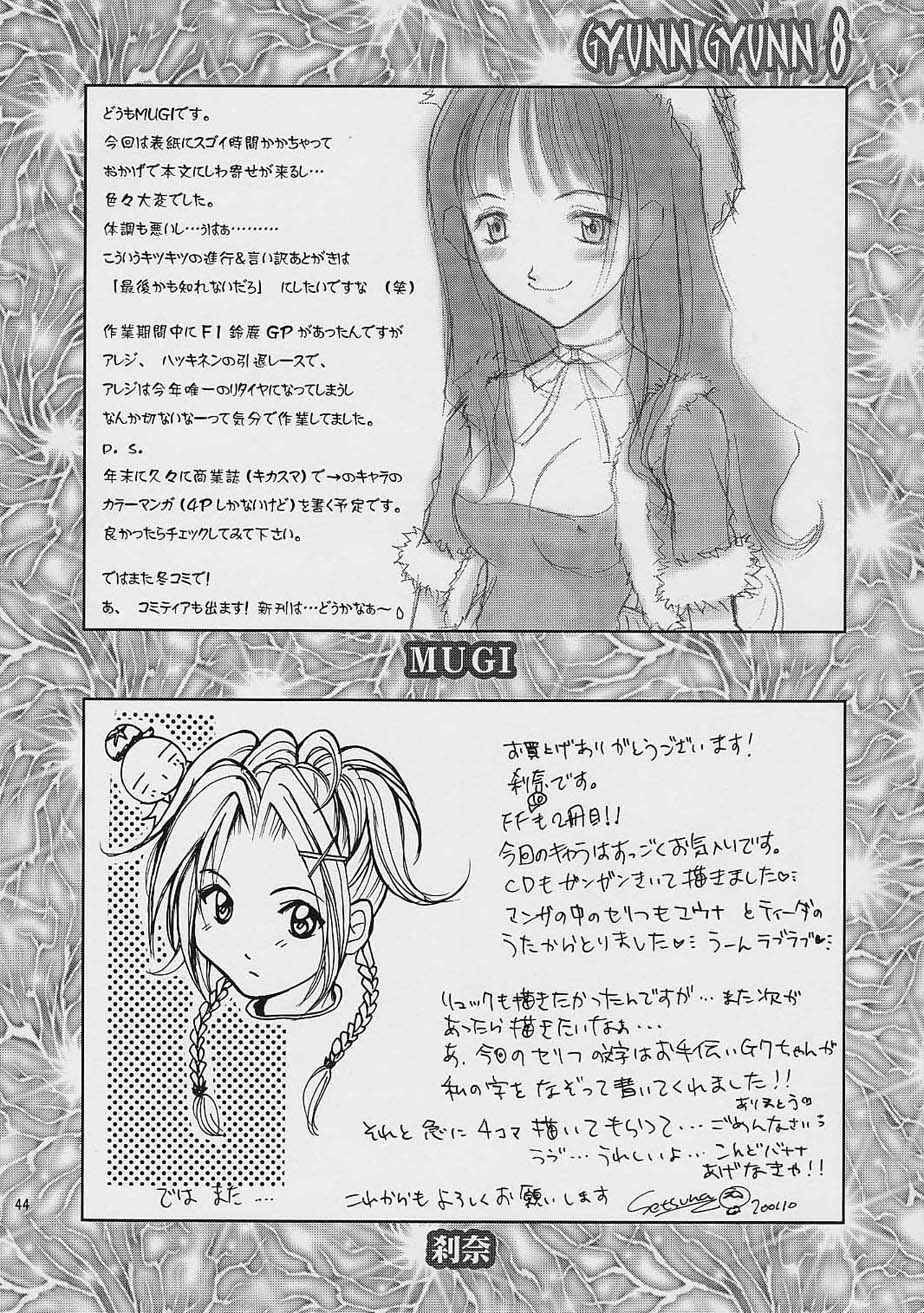 GYUNN GYUNN 8
どうもMUGIです。
今回は表紙にスゴイ時間かかちゃって
おかげで本文にしわ寄せが来るし…
色々大変でした。
体調も悪いし…うはぁ………
こういうキツキツの進行&言い訳あとがきは
「最後かも知れないだろ」 にしたいですな (笑)
作業期間中にF1 鈴鹿 GPがあったんですが
アレジ、 ハッキネンの引退レースで、
アレジは今年唯一のリタイヤになってしまうし
なんか切ないなーって気分で作業してました。
P. S.
年末に久々に商業誌(キカスマ)で→のキャラの
カラーマンガ(4Pしかないけど)を書く予定です。
良かったらチェックしてみて下さい。
ではまた冬コミで!
あ、 コミティアも出ます! 新刊は…どうかなぁ〜
MUGI
お買上げありがとうございます!
刹奈です。
FF10も2冊目!!
今回のキャラはすっごくお気入りです。
CDもガンガンきいて描きました♡
マンガの中のセリフもユウナとティーダの
うたからとりました♡ うーんラブラブ♡
リュックも描きたかったんですが…また次が
あったら描きたいなぁ…
あ、今回のセリフの文字はお手伝いGクちゃんが
私の字をなぞって書いてくれました!!
ありがとう
それと急に4コマ描いてもらって…ごめんなさい
うづ…うれしいよ…こんどバナナ
あげなきゃ!!
では また …
これからもよろしくお願いします
Setsuna 2001.10
44
刹奈